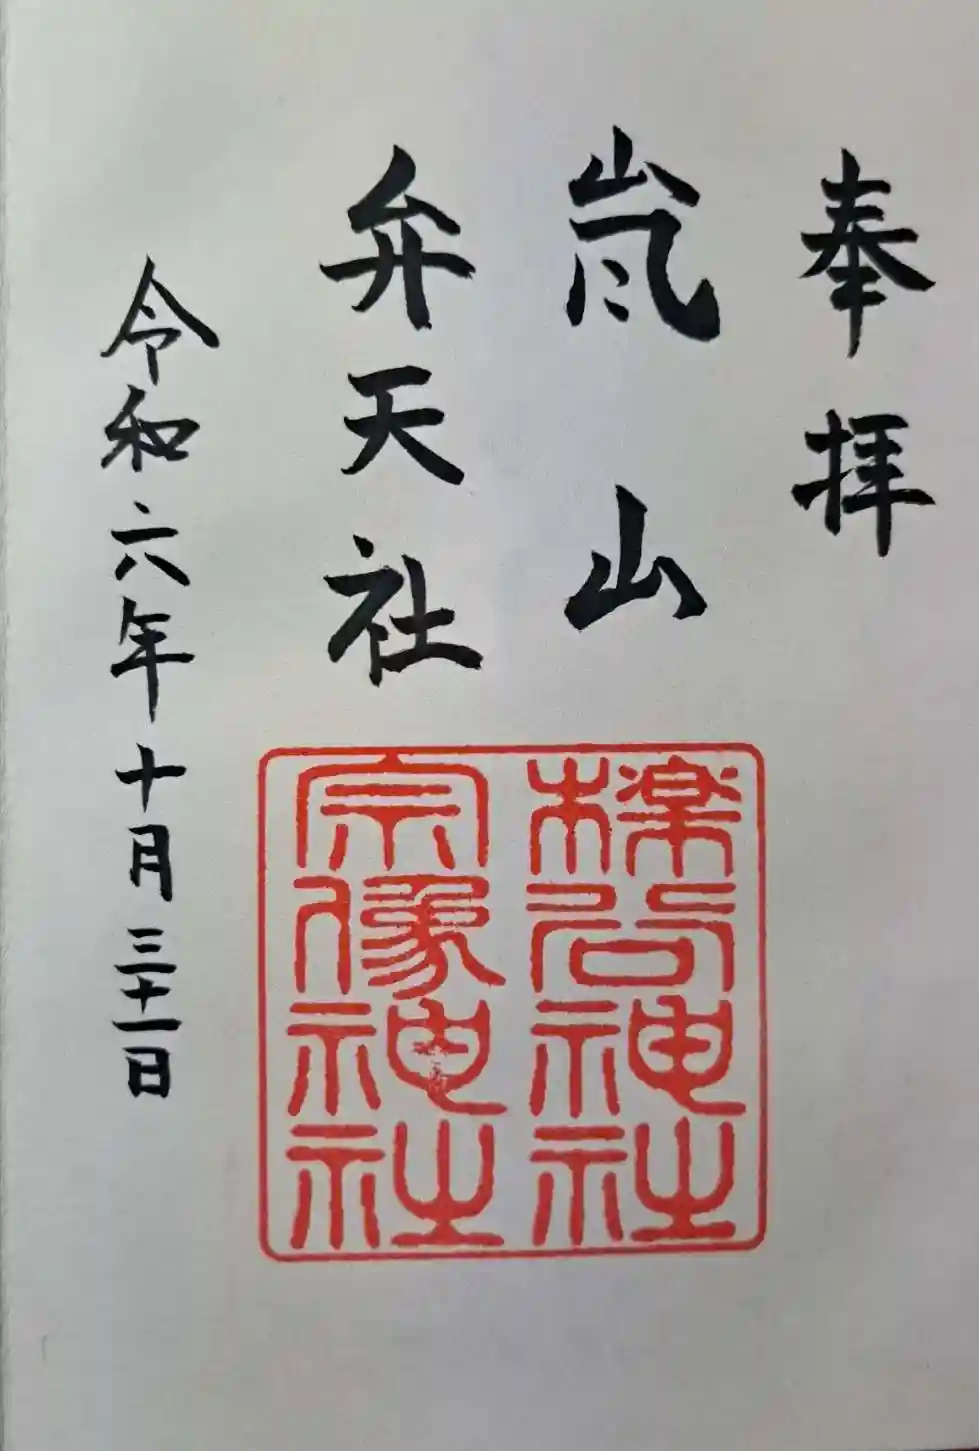 奉拝
嵐山
弁天社
令和六年十月三十一日
檪谷神社
宗像神社